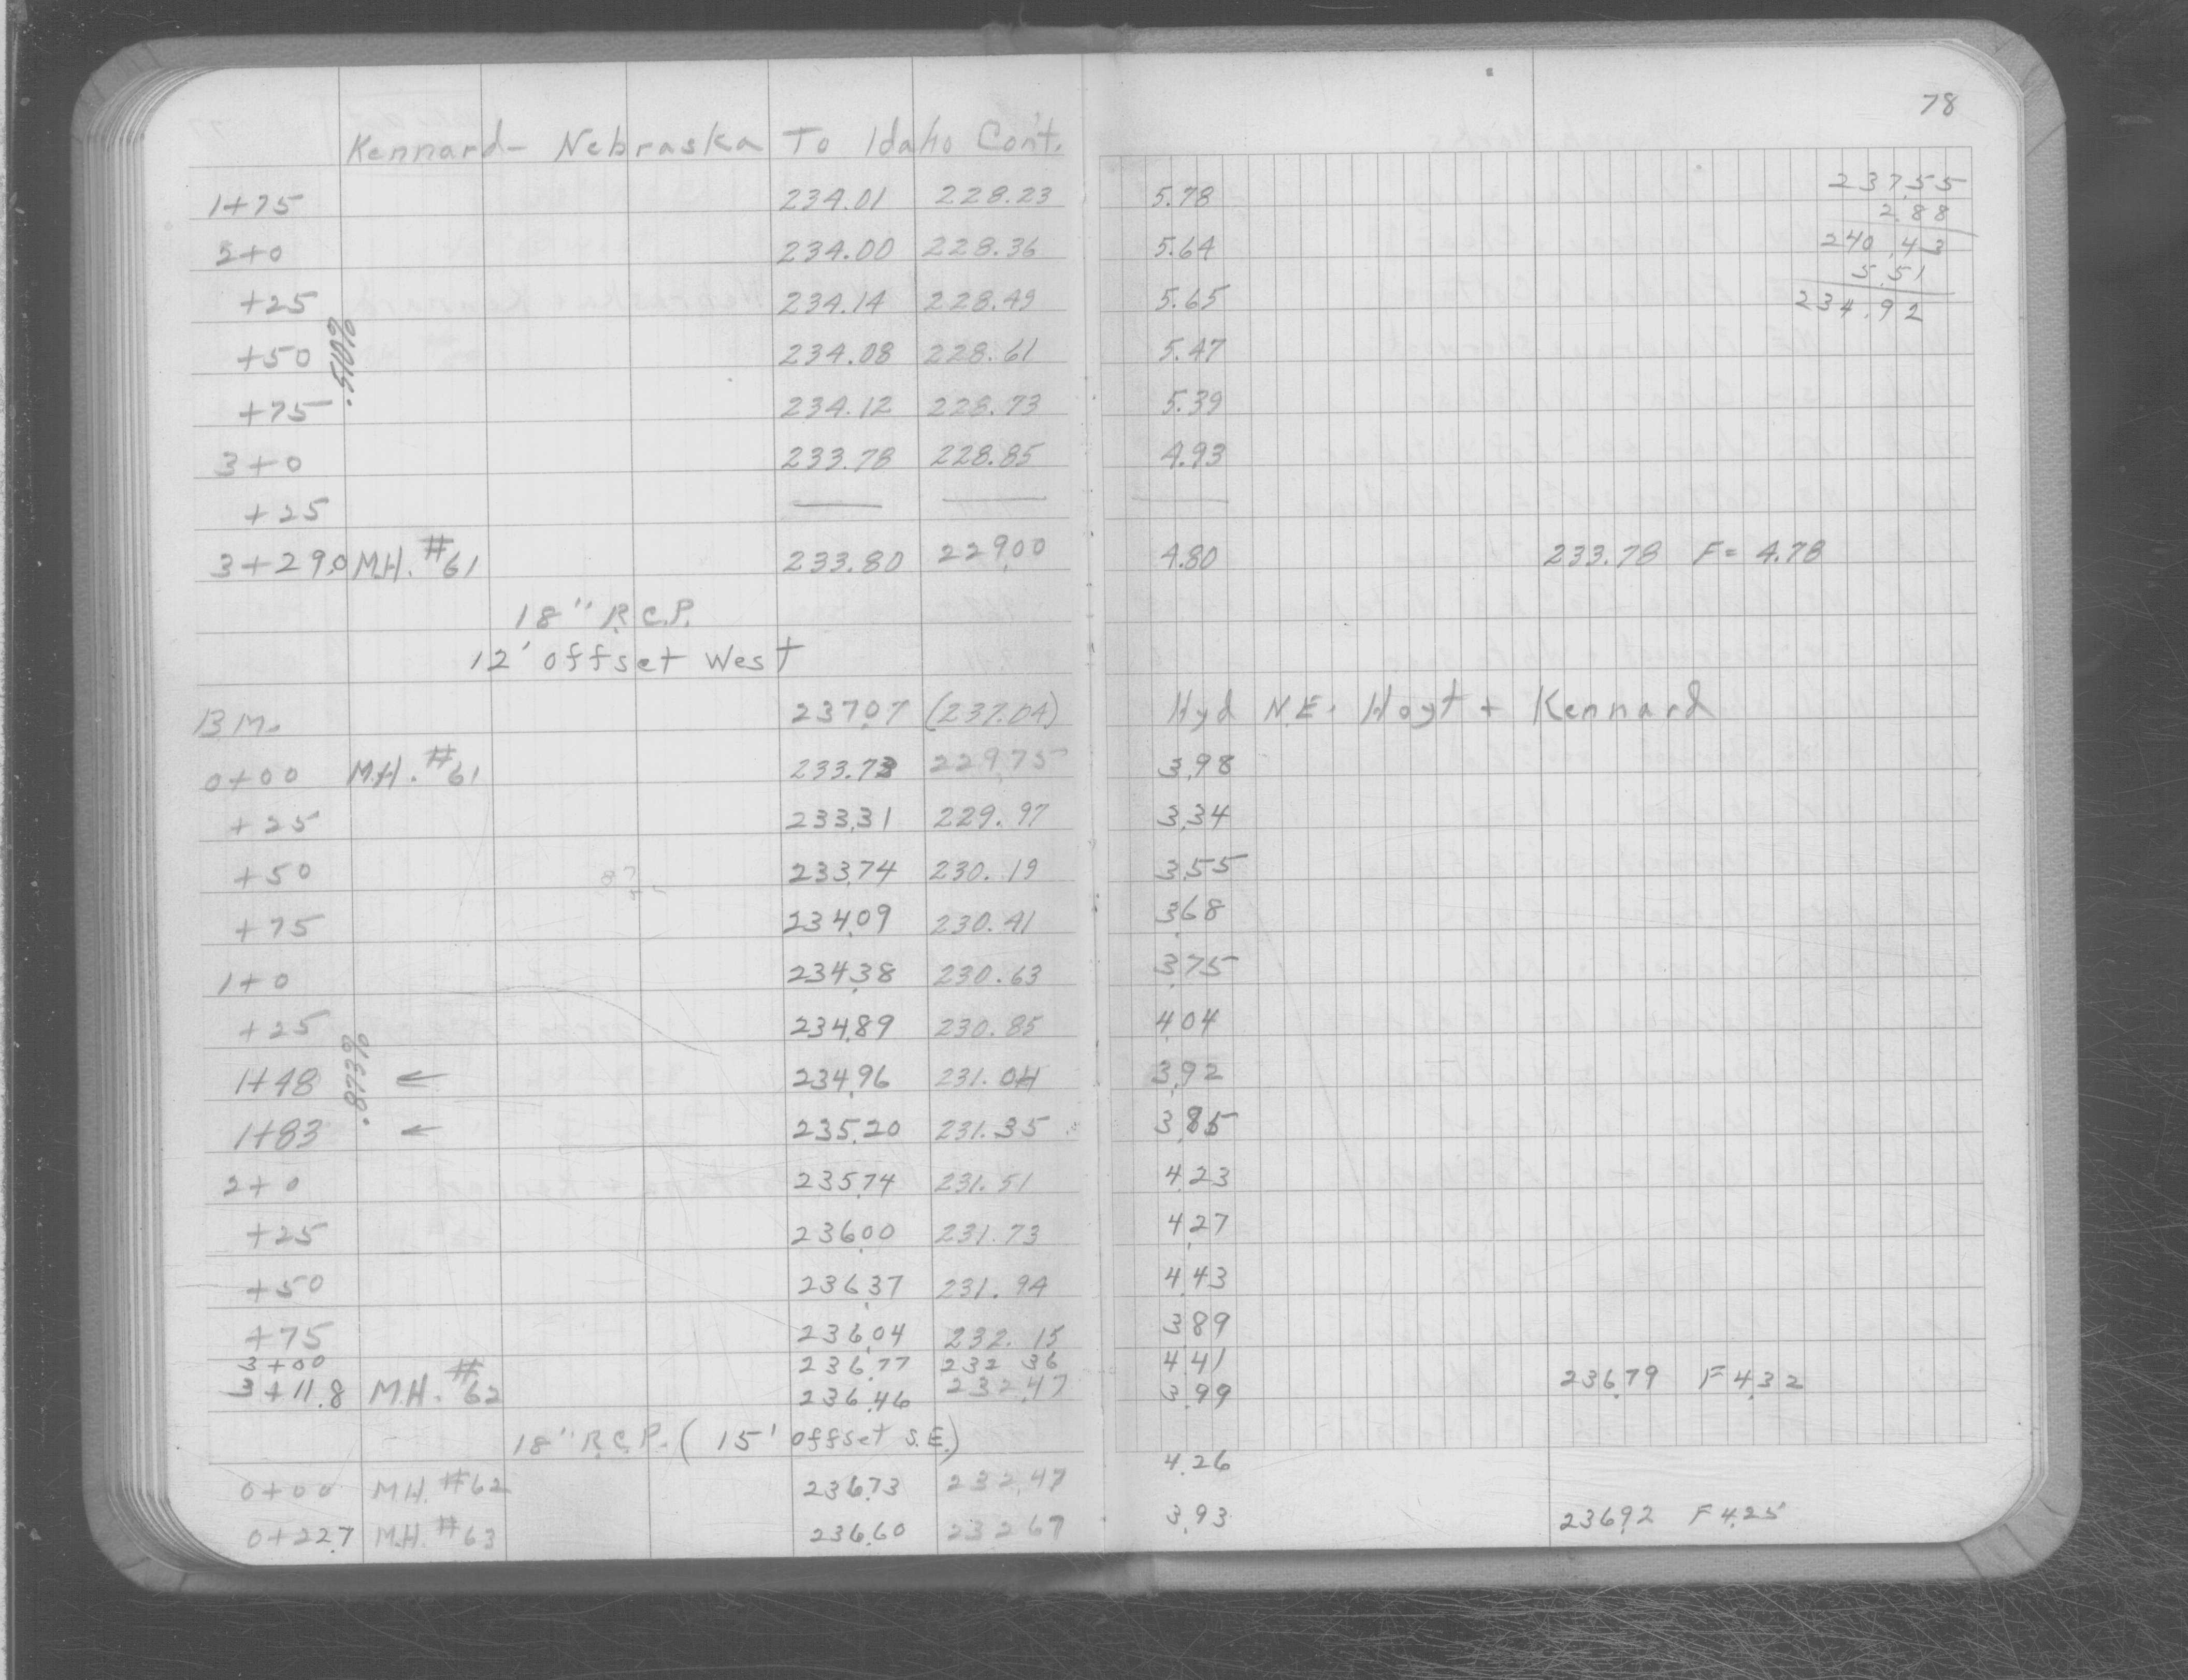 78
Kennard - Nebraska To Idaho Con't.
1+75 234.01 228.23 5.78 237.55
2.88
2+0 234.00 228.36 5.64 240.43
5.51
+25 234.14 228.49 5.65 234.92
+50 .510% 234.08 228.61 5.47
+75 234.12 228.73 5.39
3+0 233.78 228.85 4.93
+25 — — —
3+29.0 M.H. #61 233.80 229.00 4.80 233.78 F= 4.78
18" R.C.P.
12' offset West
B.M. 237.07 (237.04) Hyd N.E. Hoyt + Kennard
0+00 M.H. #61 233.73 229.75 3.98
+25 233.31 229.97 3.34
+50 233.74 230.19 3.55
+75 234.09 230.41 3.68
1+0 234.38 230.63 3.75
+25 234.89 230.85 4.04
1+48 .873% ← 234.96 231.04 3.92
1+83 ← 235.20 231.35 3.85
2+0 235.74 231.51 4.23
+25 236.00 231.73 4.27
+50 236.37 231.94 4.43
+75 236.04 232.15 3.89
3+00 236.77 232.36 4.41
3+11.8 M.H. #62 236.46 232.47 3.99 236.79 F 4.32
18" R.C.P. (15' offset S.E.)
0+00 M.H. #62 236.73 232.47 4.26
0+22.7 M.H. #63 236.60 232.67 3.93 236.92 F 4.25